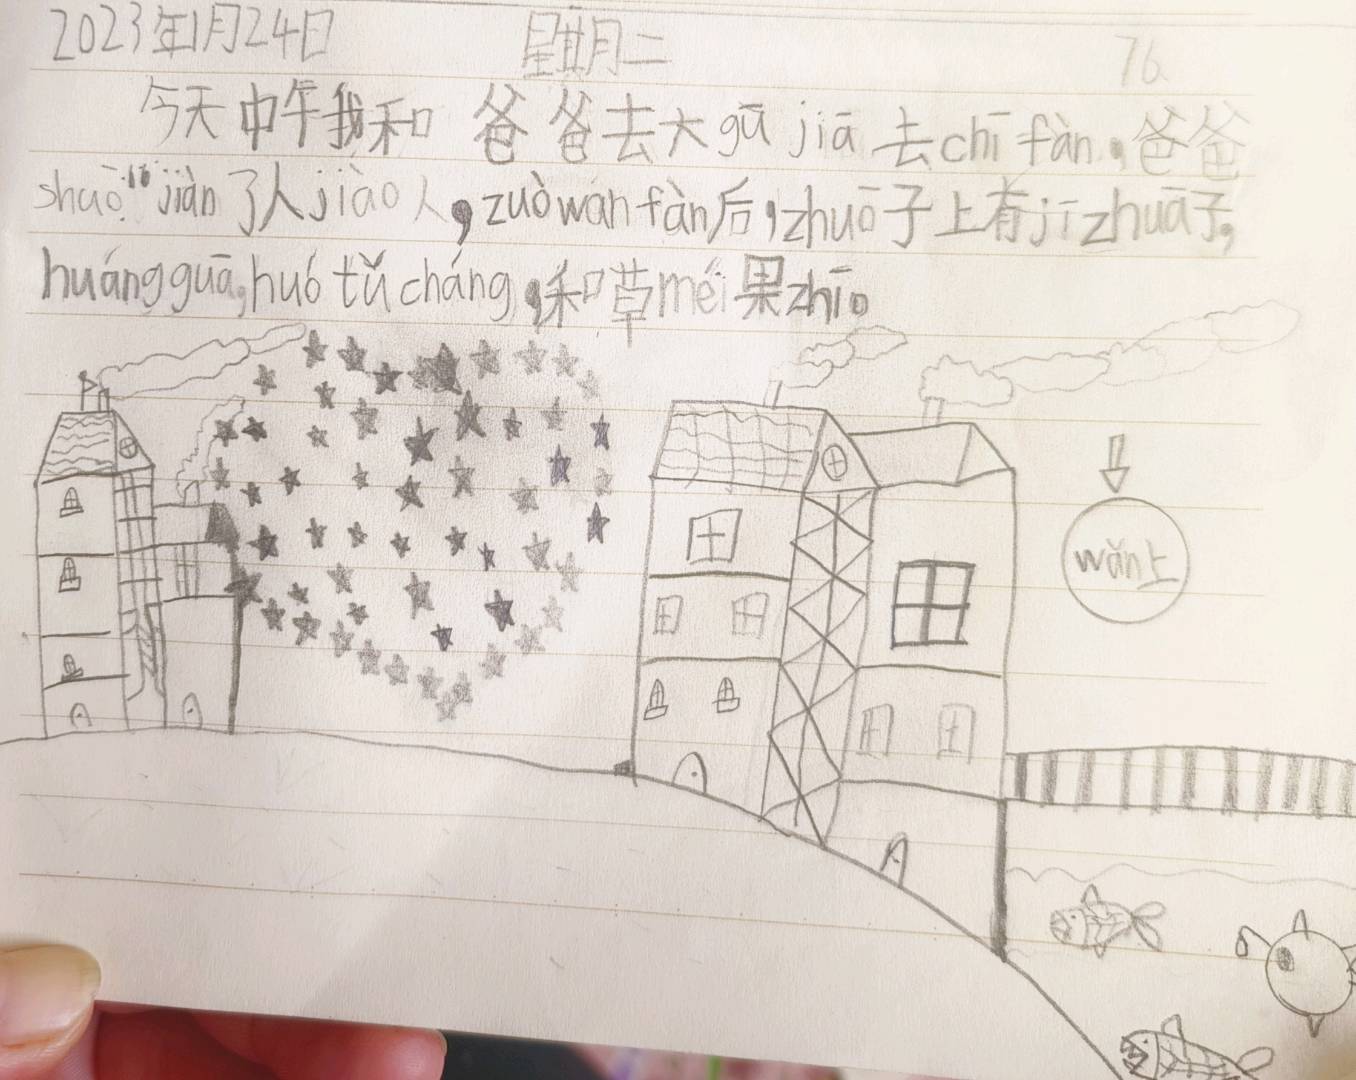 2023年1月24日 星期二 76
今天中午我和爸爸去大gū jiā去chī fàn，爸爸
shuō："jiàn了人jiào人，zuò wán fàn后，zhuō子上有jī zhuā子，
huáng guā，huó tǔ cháng，和草méi果zhī。
wǎn上